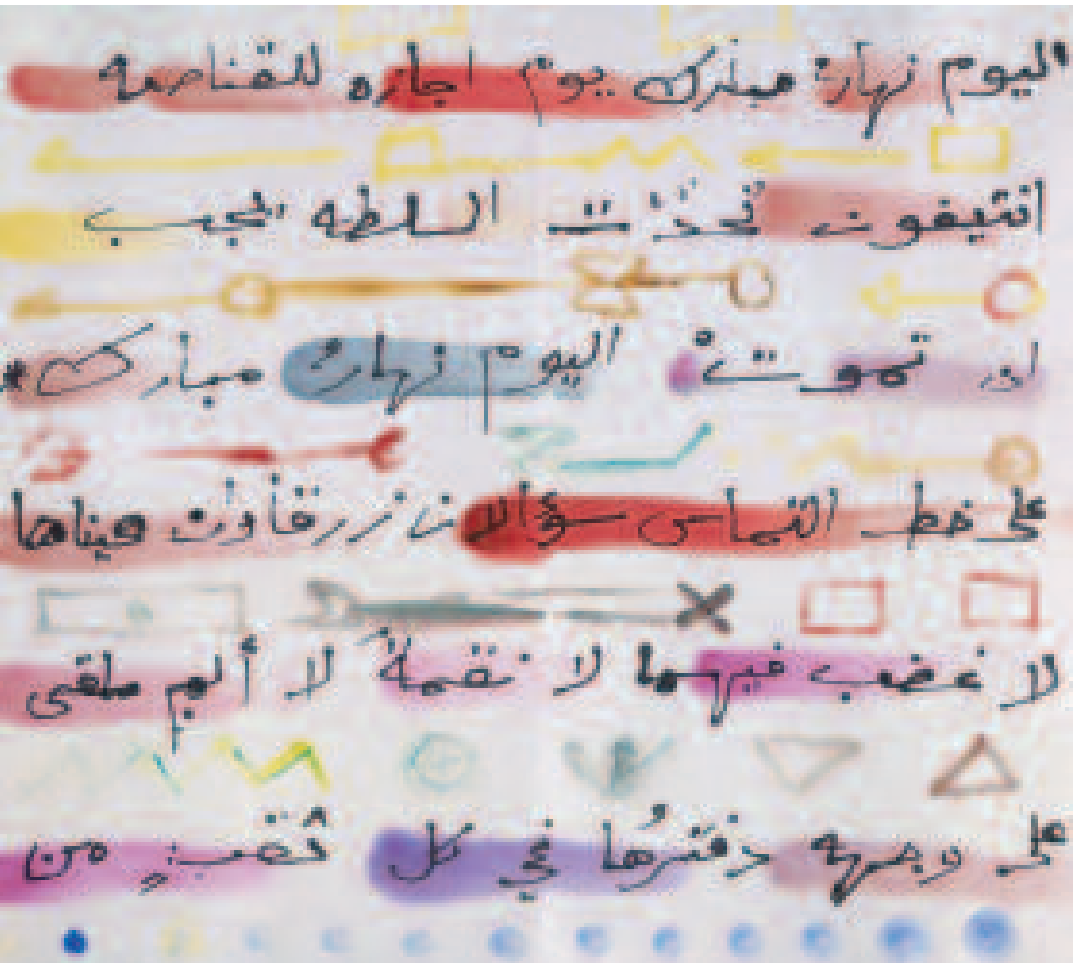 اليوم نهارٌ مبارك يوم اجازه للقناصه
انتيغون تحدّت السلطه يجب
ان تموتْ اليوم نهارٌ مبارك
على خط التماس سؤالان زرقاوان عيناها
لا غضب فيهما لا نقمةٌ لا ألم ملقى
على وجهه دفترُها في كل ثقبٍ من